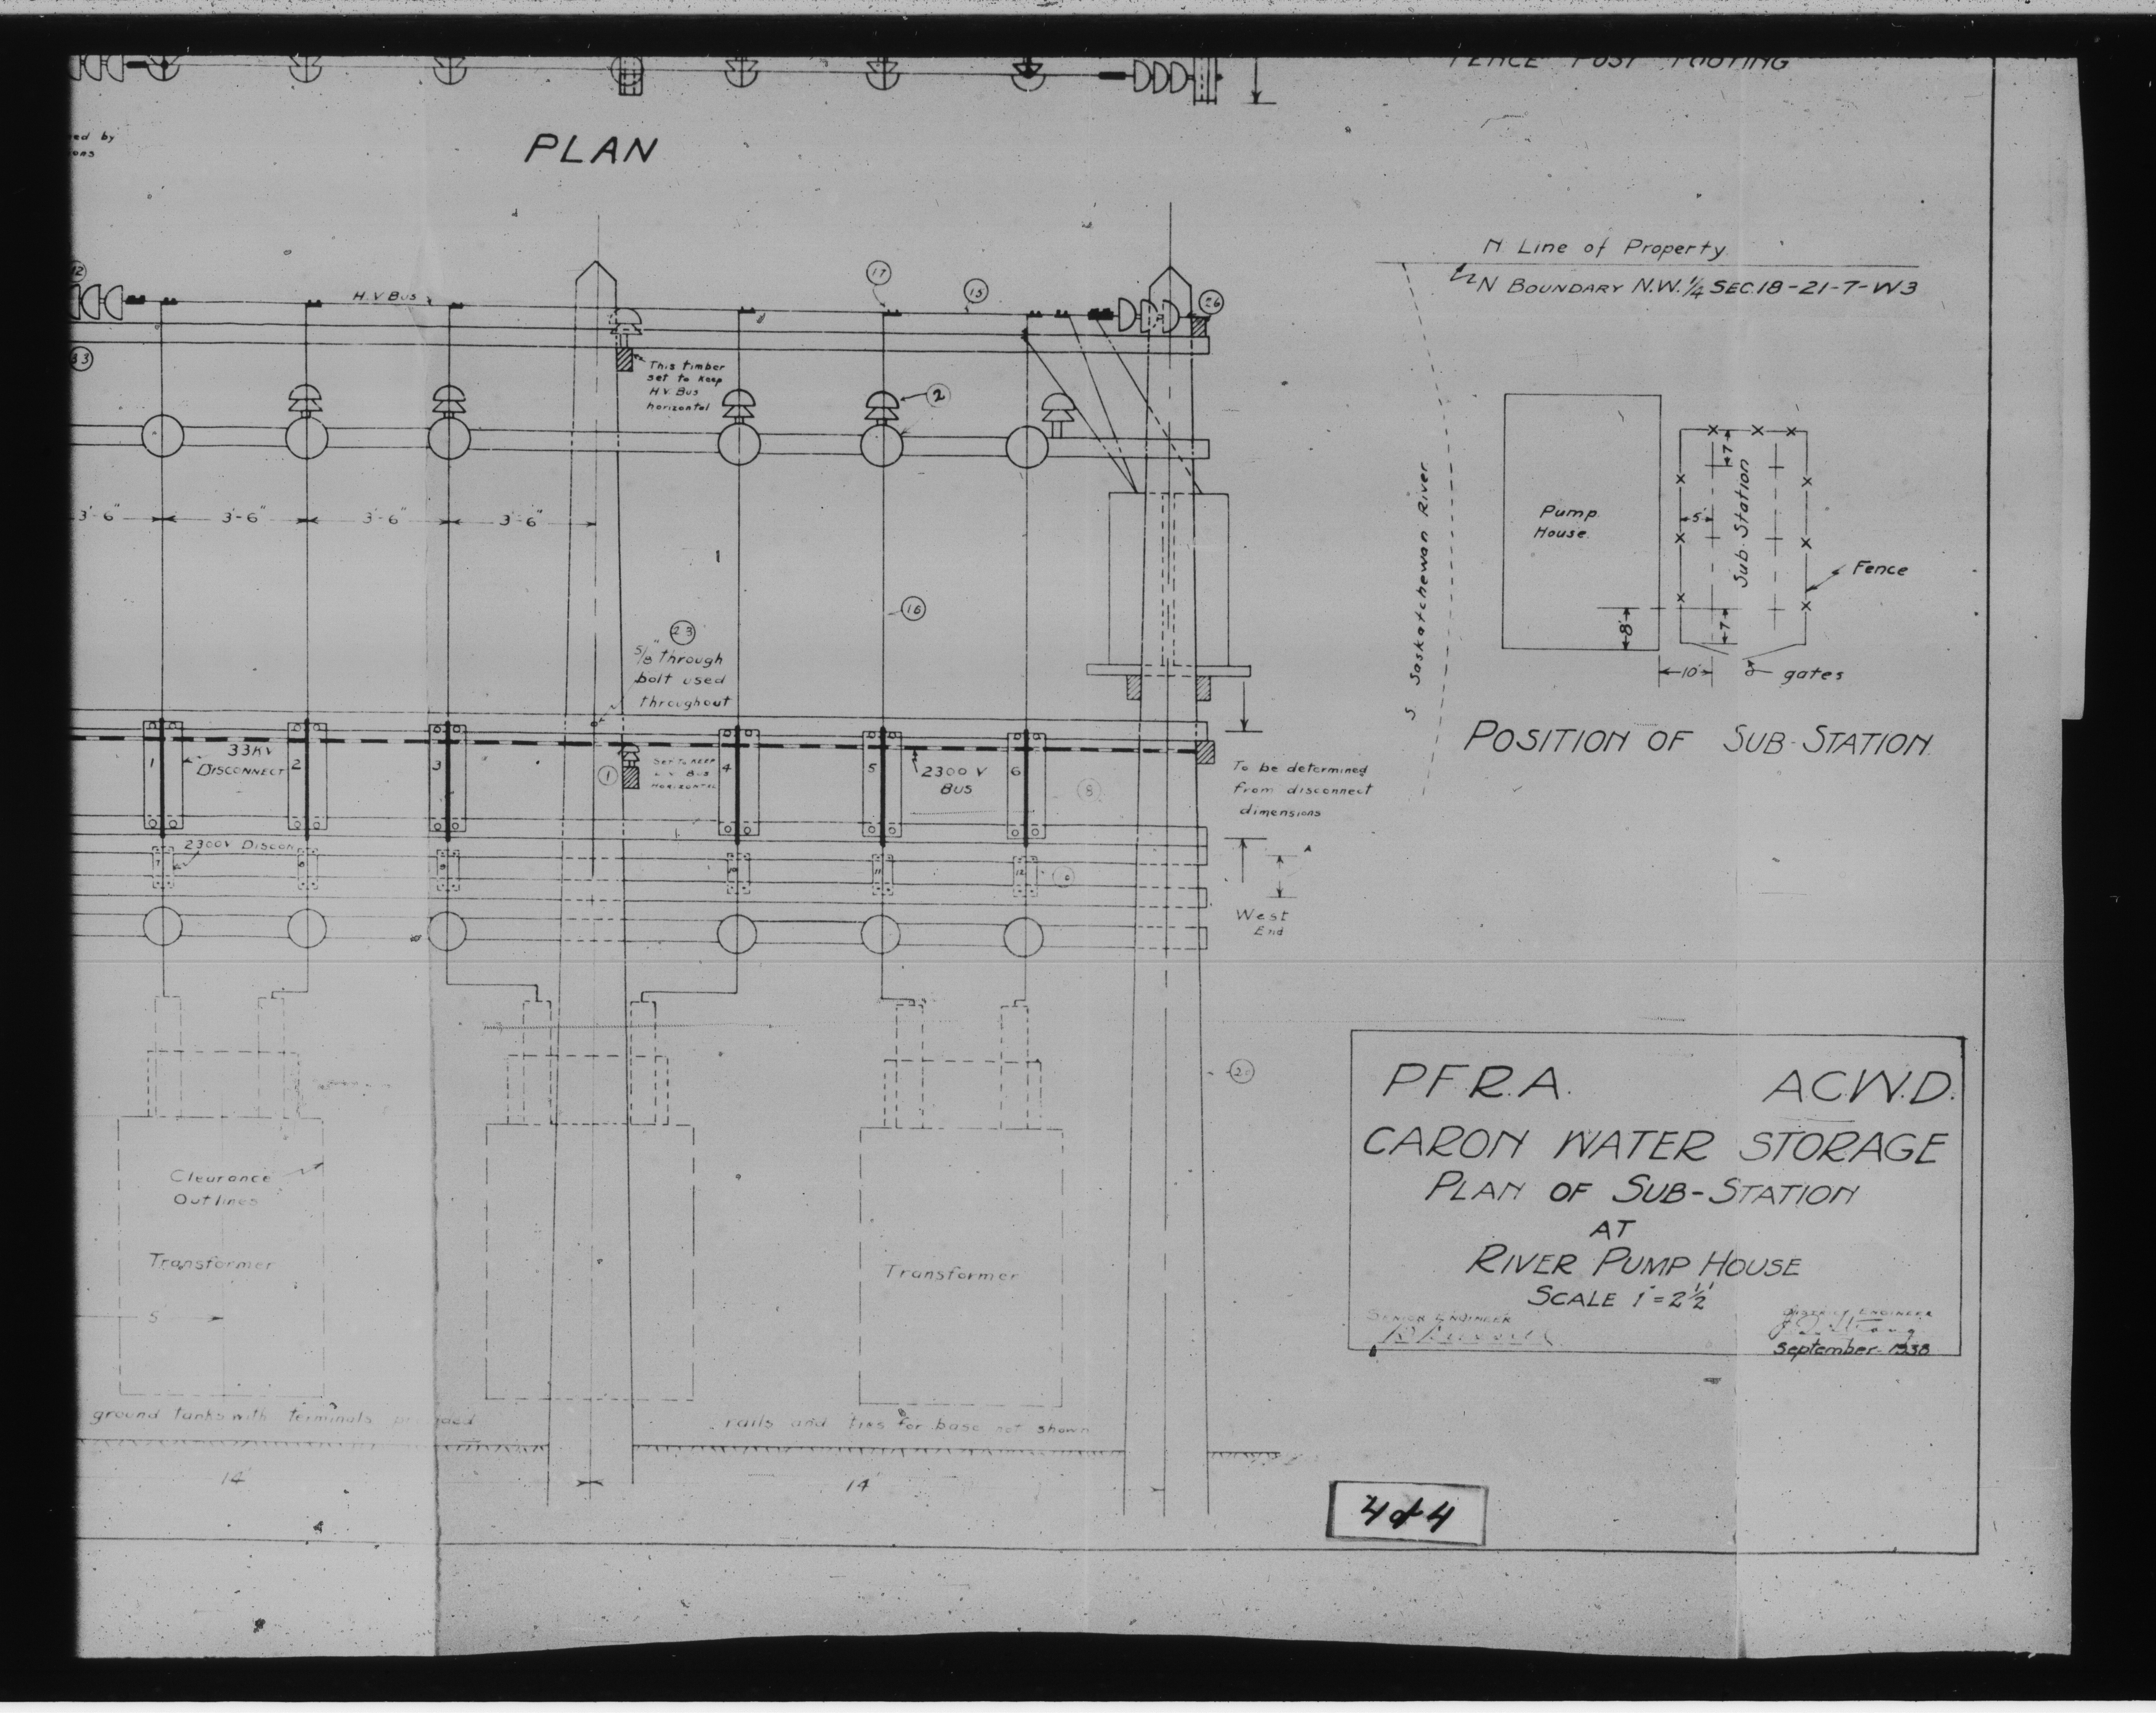 FENCE POST FOOTING
ed by
ons
PLAN
N Line of Property
N BOUNDARY N.W. 1/4 SEC. 18-21-7-W3
12
H.V BUS
17
15
26
33
This timber
set to keep
H.V. Bus
horizontal
2
3'-6"
3'-6"
3'-6"
3'-6"
S Saskatchewan River
Pump
House
7'
5'
Sub-Station
Fence
8'
7'
10'
gates
POSITION OF SUB-STATION
16
23
5/8" through
bolt used
throughout
33KV
DISCONNECT
1
2
3
1
SET TO KEEP
L V BUS
HORIZONTAL
4
5
6
2300 V
BUS
8
To be determined
from disconnect
dimensions
2300V DISCON
7
8
9
10
11
12
West
End
Clearance
Outlines
Transformer
5
Transformer
P.F.R.A. A.C.W.D.
CARON WATER STORAGE
PLAN OF SUB-STATION
AT
RIVER PUMP HOUSE
SCALE 1" = 2 1/2'
SENIOR ENGINEER
DISTRICT ENGINEER
September - 1938
ground tanks with terminals provided
rails and ties for base not shown
14'
14'
4 of 4